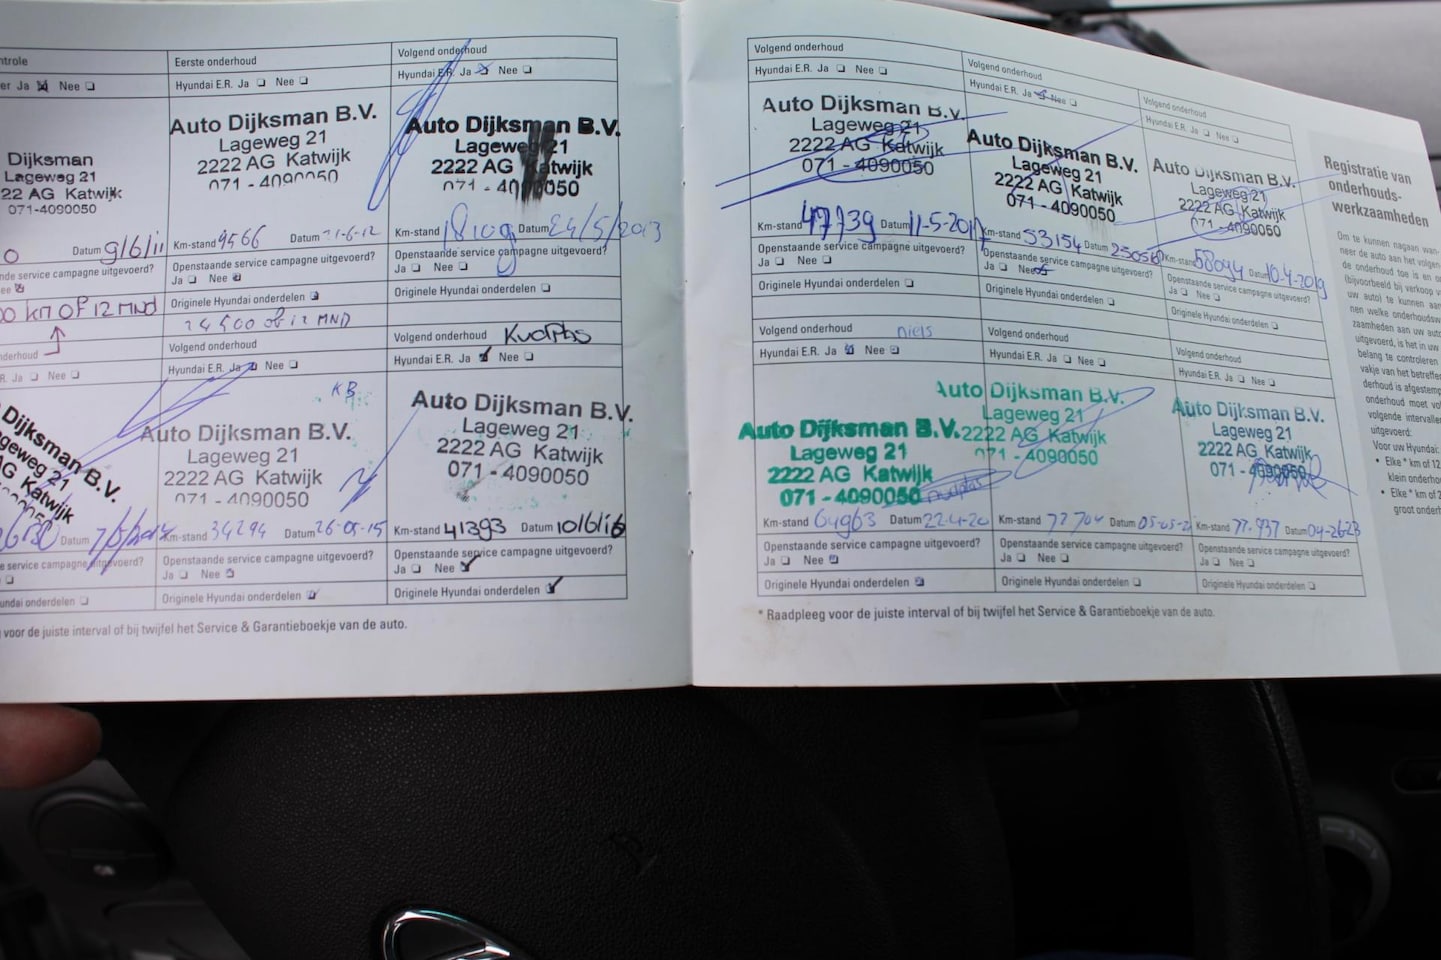 ntrole
er Ja Nee
Dijksman
Lageweg 21
22 AG Katwijk
071-4090050
Datum 9/6/11
00 km OF 12 MND
Eerste onderhoud
Hyundai E.R. Ja Nee
Auto Dijksman B.V.
Lageweg 21
2222 AG Katwijk
071 - 4090050
Km-stand 9566 Datum 21-6-12
Openstaande service campagne uitgevoerd?
Ja Nee
Originele Hyundai onderdelen
24500 of 12 MND
Volgend onderhoud
Hyundai E.R. Ja Nee
Auto Dijksman B.V.
Lageweg 21
2222 AG Katwijk
071 - 4090050
Km-stand 18109 Datum 24/5/2013
Openstaande service campagne uitgevoerd?
Ja Nee
Originele Hyundai onderdelen
derhoud
R. Ja Nee
Dijksman B.V.
geweg 21
AG Katwijk
Datum 7/5/2014
e service campagne uitgevoerd?
undai onderdelen
Volgend onderhoud
Hyundai E.R. Ja Nee
KB
Auto Dijksman B.V.
Lageweg 21
2222 AG Katwijk
071 - 4090050
Km-stand 34294 Datum 26-05-15
Openstaande service campagne uitgevoerd?
Ja Nee
Originele Hyundai onderdelen
Volgend onderhoud
Hyundai E.R. Ja Nee
Auto Dijksman B.V.
Lageweg 21
2222 AG Katwijk
071 - 4090050
Km-stand 41393 Datum 10/6/16
Openstaande service campagne uitgevoerd?
Ja Nee
Originele Hyundai onderdelen
voor de juiste interval of bij twijfel het Service & Garantieboekje van de auto.
Volgend onderhoud
Hyundai E.R. Ja Nee
Auto Dijksman B.V.
Lageweg 21
2222 AG Katwijk
071 - 4090050
Km-stand 47739 Datum 11-5-2017
Openstaande service campagne uitgevoerd?
Ja Nee
Originele Hyundai onderdelen
Volgend onderhoud
Hyundai E.R. Ja Nee
Auto Dijksman B.V.
Lageweg 21
2222 AG Katwijk
071 - 4090050
Km-stand 53154 Datum
Openstaande service campagne uitgevoerd?
Ja Nee
Originele Hyundai onderdelen
Volgend onderhoud
Hyundai E.R. Ja Nee
Auto Dijksman B.V.
Lageweg 21
2222 AG Katwijk
071 - 4090050
Km-stand 58094 Datum 10-4-2019
Openstaande service campagne uitgevoerd?
Ja Nee
Originele Hyundai onderdelen
Volgend onderhoud niels
Hyundai E.R. Ja Nee
Auto Dijksman B.V.
Lageweg 21
2222 AG Katwijk
071 - 4090050
Km-stand 64963 Datum 22-4-20
Openstaande service campagne uitgevoerd?
Ja Nee
Originele Hyundai onderdelen
Volgend onderhoud
Hyundai E.R. Ja Nee
Auto Dijksman B.V.
Lageweg 21
2222 AG Katwijk
071 - 4090050
Km-stand 72704 Datum 05-05-2
Openstaande service campagne uitgevoerd?
Ja Nee
Originele Hyundai onderdelen
Volgend onderhoud
Hyundai E.R. Ja Nee
Auto Dijksman B.V.
Lageweg 21
2222 AG Katwijk
071 - 4090050
Km-stand 77.937 Datum 04-26-23
Openstaande service campagne uitgevoerd?
Ja Nee
Originele Hyundai onderdelen
* Raadpleeg voor de juiste interval of bij twijfel het Service & Garantieboekje van de auto.
Registratie van
onderhouds-
werkzaamheden
Om te kunnen nagaan wan-
neer de auto aan het volgen
de onderhoud toe is en o
(bijvoorbeeld bij verkoop v
uw auto) te kunnen aan
nen welke onderhoudsw
zaamheden aan uw auto
uitgevoerd, is het in uw
belang te controleren
vakje van het betreffe
derhoud is afgestemp
onderhoud moet vol
volgende intervalle
uitgevoerd:
Voor uw Hyundai:
• Elke * km of 12
klein onderho
• Elke * km of 2
groot onderh